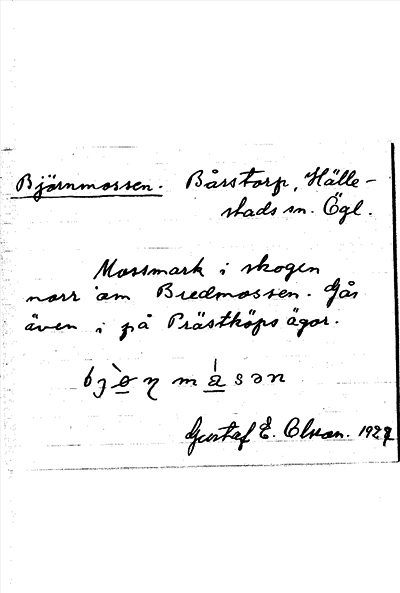 Björnmossen. Bårstorp, Hälle-
stads sn. Ögl.
Mossmark i skogen
norr om Bredmossen. Går
även i på Prästköps ägor.
Gustaf E. Olson. 1927